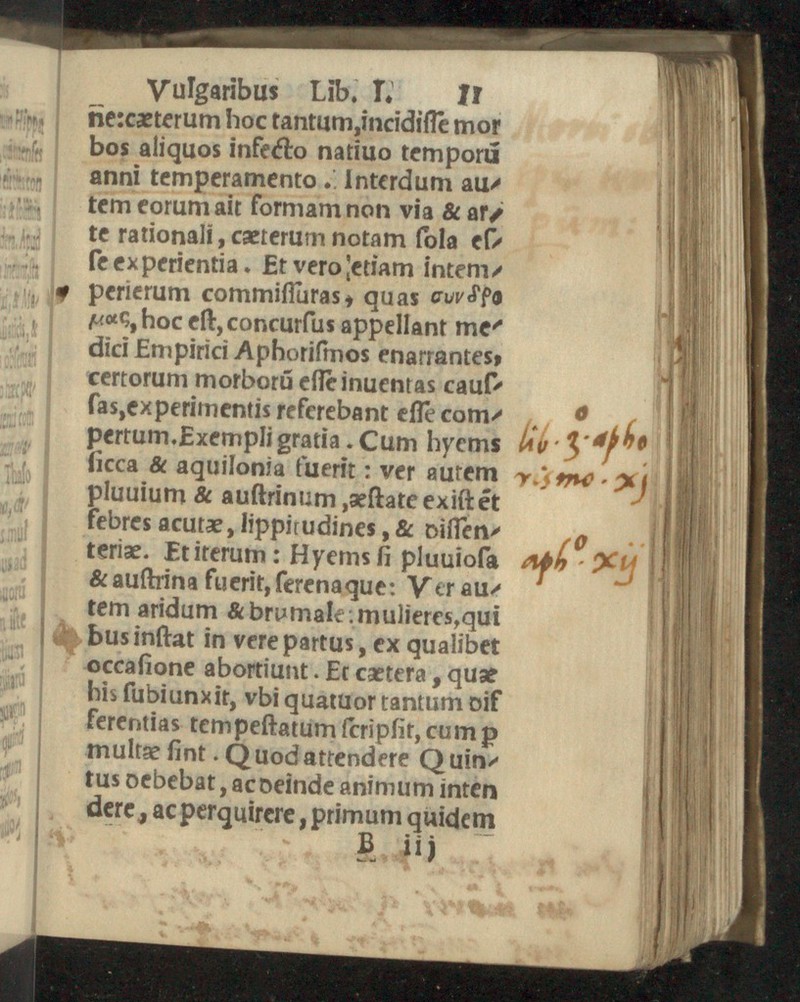 Vulgaribus Lib. I. 11
ne:cæterum hoc tantum,incidiſſe mor
bos aliquos infecto natiuo temporū
anni temperamento . Interdum au⸗
tem eorum ait formam non via & ar⸗
te rationali, cæterum notam ſola eſ⸗
ſe experientia. Et vero etiam intem⸗
perierum commiſſuras, quas συνδρο
μας, hoc eſt, concurſus appellant me⸗
dici Empirici Aphoriſmos enarrantes,
certorum morborū eſſe inuentas cauſ⸗
ſas,experimentis referebant eſſe com⸗
pertum.Exempli gratia. Cum hyems
ſicca & aquilonia fuerit : ver autem
pluuium & auſtrinum ,æſtate exiſtēt
febres acutæ, lippitudines, & diſſen⸗
teriæ. Et iterum : Hyems ſi pluuioſa
& auſtrina fuerit, ſerenaque: Ver au⸗
tem aridum & brumale: mulieres,qui
bus inſtat in vere partus, ex qualibet
occaſione abortiunt. Et cætera, quæ
his ſubiunxit, vbi quatuor tantum dif
ferentias tempeſtatum ſcripſit, cum p
multæ ſint. Quod attendere Quin⸗
tus debebat, ac deinde animum inten
dere, ac perquirere, primum quidem
B iij
lib. 3. apho
rismo. xj
aph°. xij